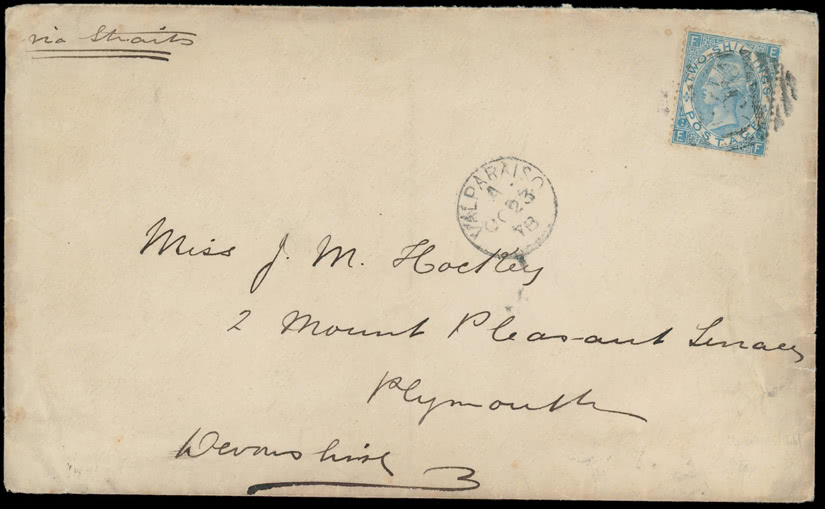 via Straits
F E
TWO SHILLINGS
POSTAGE
E F
VALPARAISO
A
OC 23
78
Miss J. M. Hockley
2 Mount Pleasant Terrace
Plymouth
Devonshire